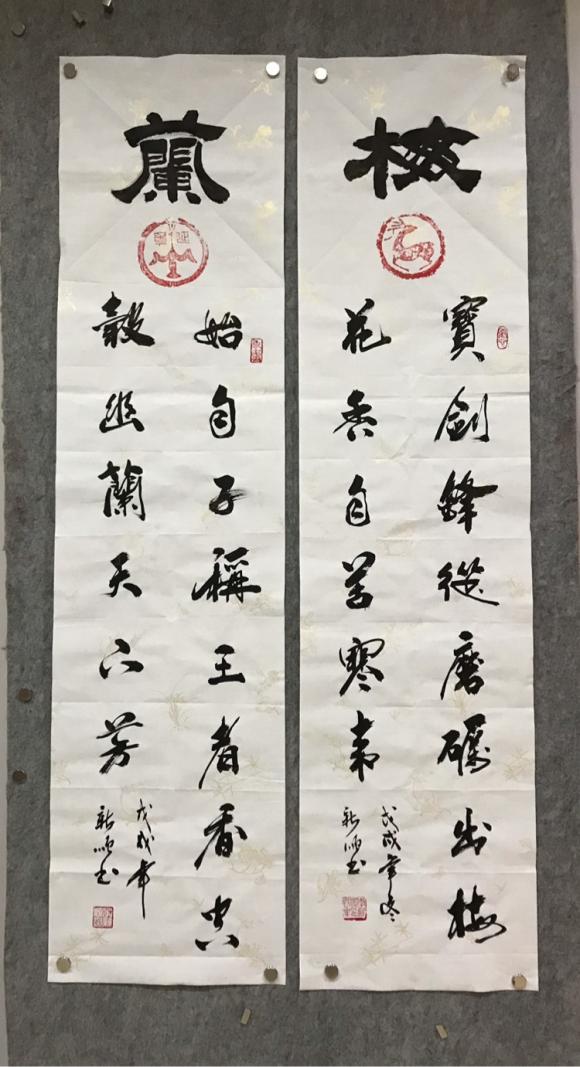 梅
寶劍鋒從磨礪出梅
花香自苦寒來
戊戌年冬
新順書
蘭
始自子稱王者香空
穀幽蘭天下芳
戊戌年
新順書